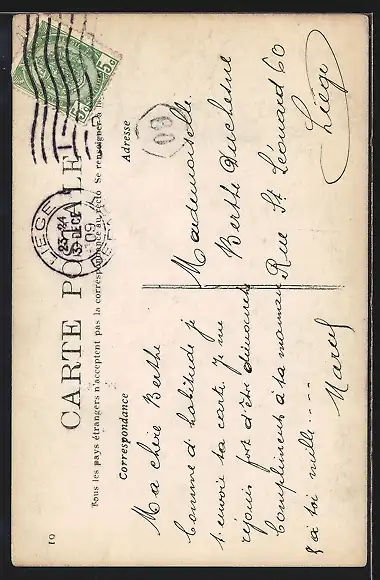 CARTE POSTALE
Tous les pays étrangers n'acceptent pas la correspondance au recto Se renseigner à la
Correspondance
Adresse
10
5c 5c
LIEGE
23-24
3 DEC
09
60
Ma chère Berthe
Comme d'habitude je
t'envoie ta carte. Je me
réjouis fort d'être dimanche
Compliments à ta maman
& à toi mille....
Marcel
Mademoiselle
Berthe Duchesne
Rue St Léonard 60
Liège